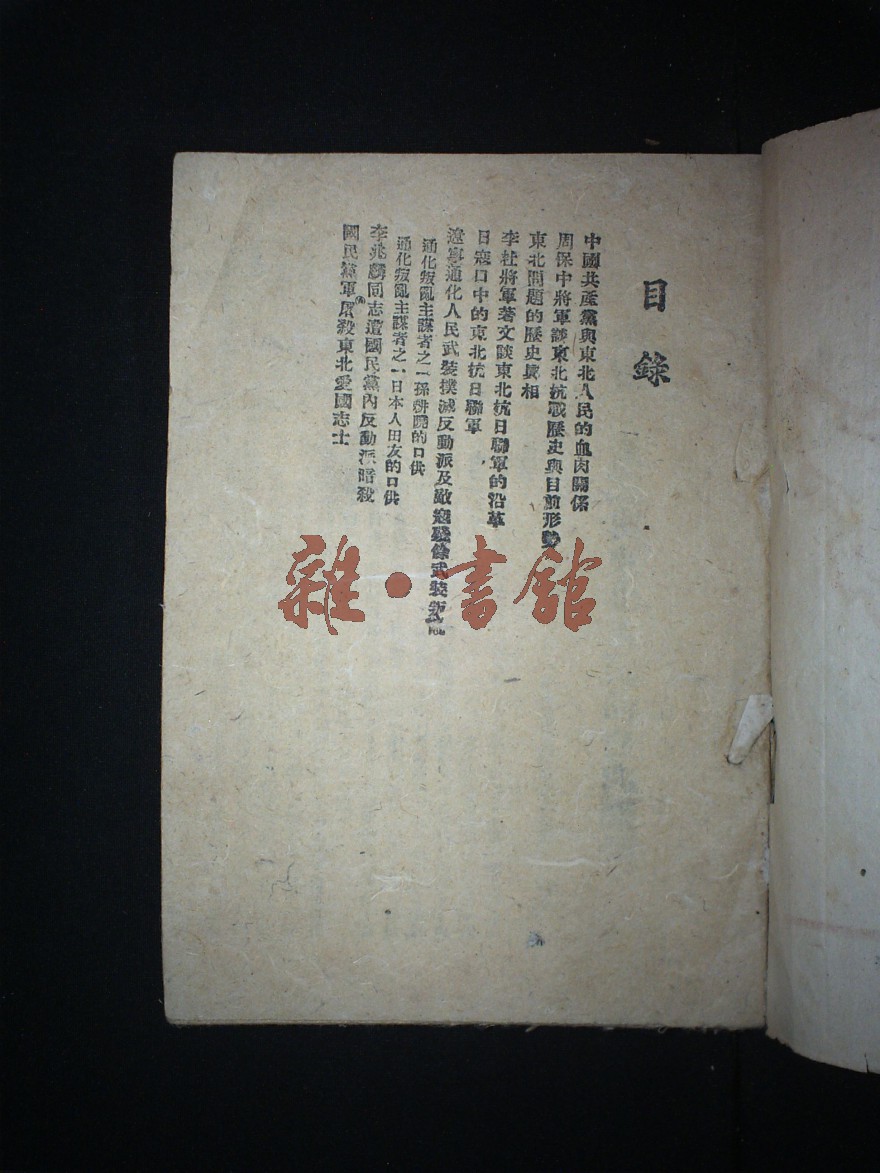 目錄
中國共產黨與東北人民的血肉關係
周保中將軍談東北抗戰歷史與目前形勢
東北問題的歷史眞相
李杜將軍著文談東北抗日聯軍的沿革
日寇口中的東北抗日聯軍
遼寧通化人民武裝撲滅反動派及敵寇殘餘武裝叛亂
通化叛亂主謀者之一孫耕曉的口供
通化叛亂主謀者之一日本人田友的口供
李兆麟同志遭國民黨內反動派暗殺
國民黨軍屠殺東北愛國志士
雜·書館